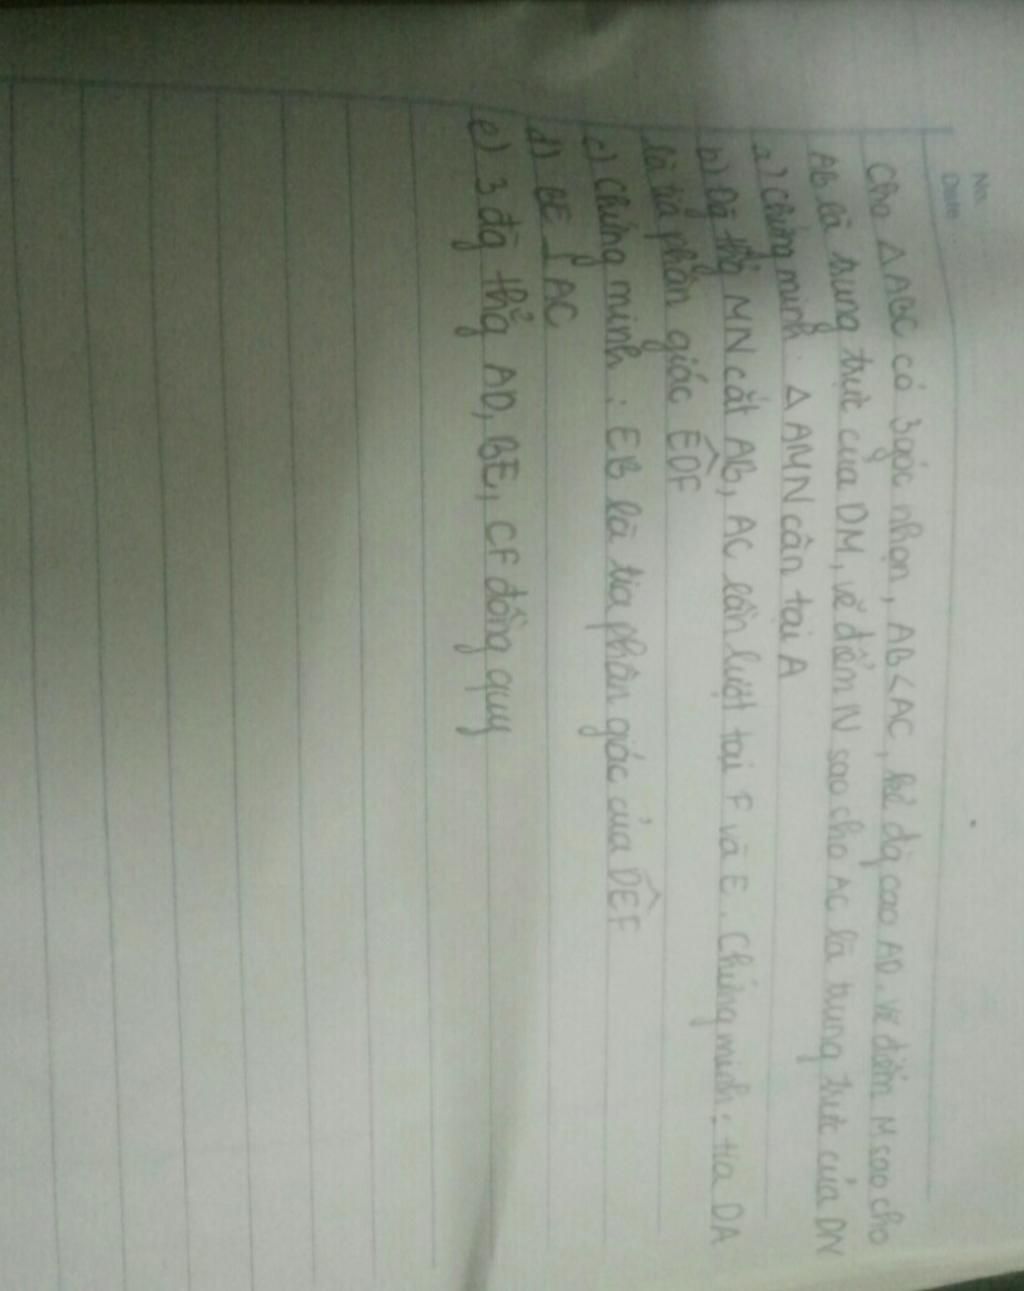 No.
Date
Cho △ABC có 3 góc nhọn, AB < AC, kẻ đg cao AD. Vẽ điểm M sao cho
AB là trung trực của DM, vẽ điểm N sao cho AC là trung trực của DN
a) Chứng minh: △AMN cân tại A
b) Đg thg MN cắt AB, AC lần lượt tại F và E. Chứng minh: tia DA
là tia phân giác \widehat{EDF}
c) Chứng minh: EB là tia phân giác của \widehat{DEF}
d) BE ⊥ AC
e) 3 đg thẳg AD, BE, CF đồng quy